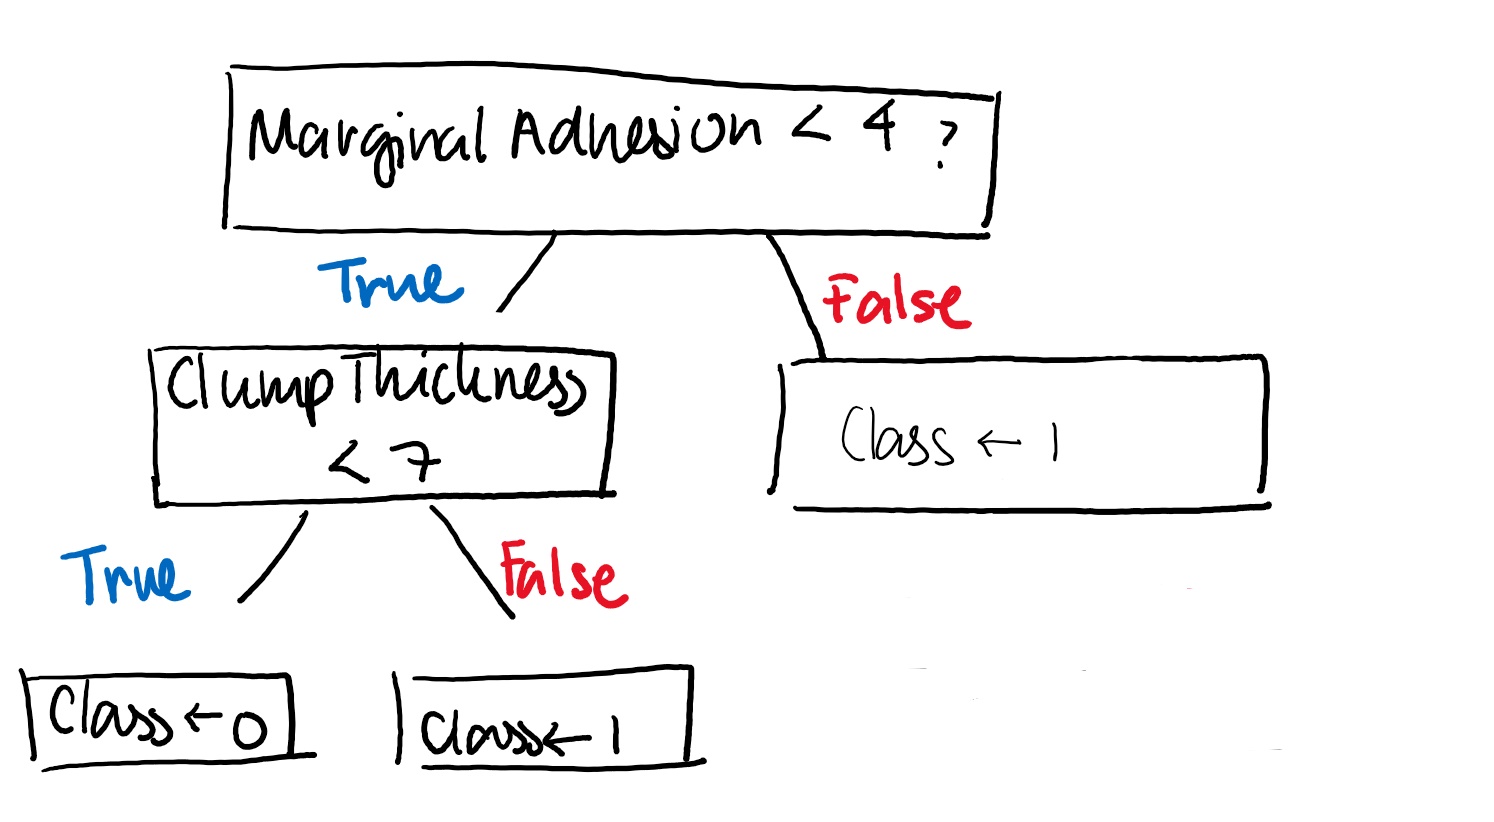 Marginal Adhesion < 4 ?
True
False
Clump Thickness
< 7
Class ← 1
True
False
Class ← 0
Class ← 1